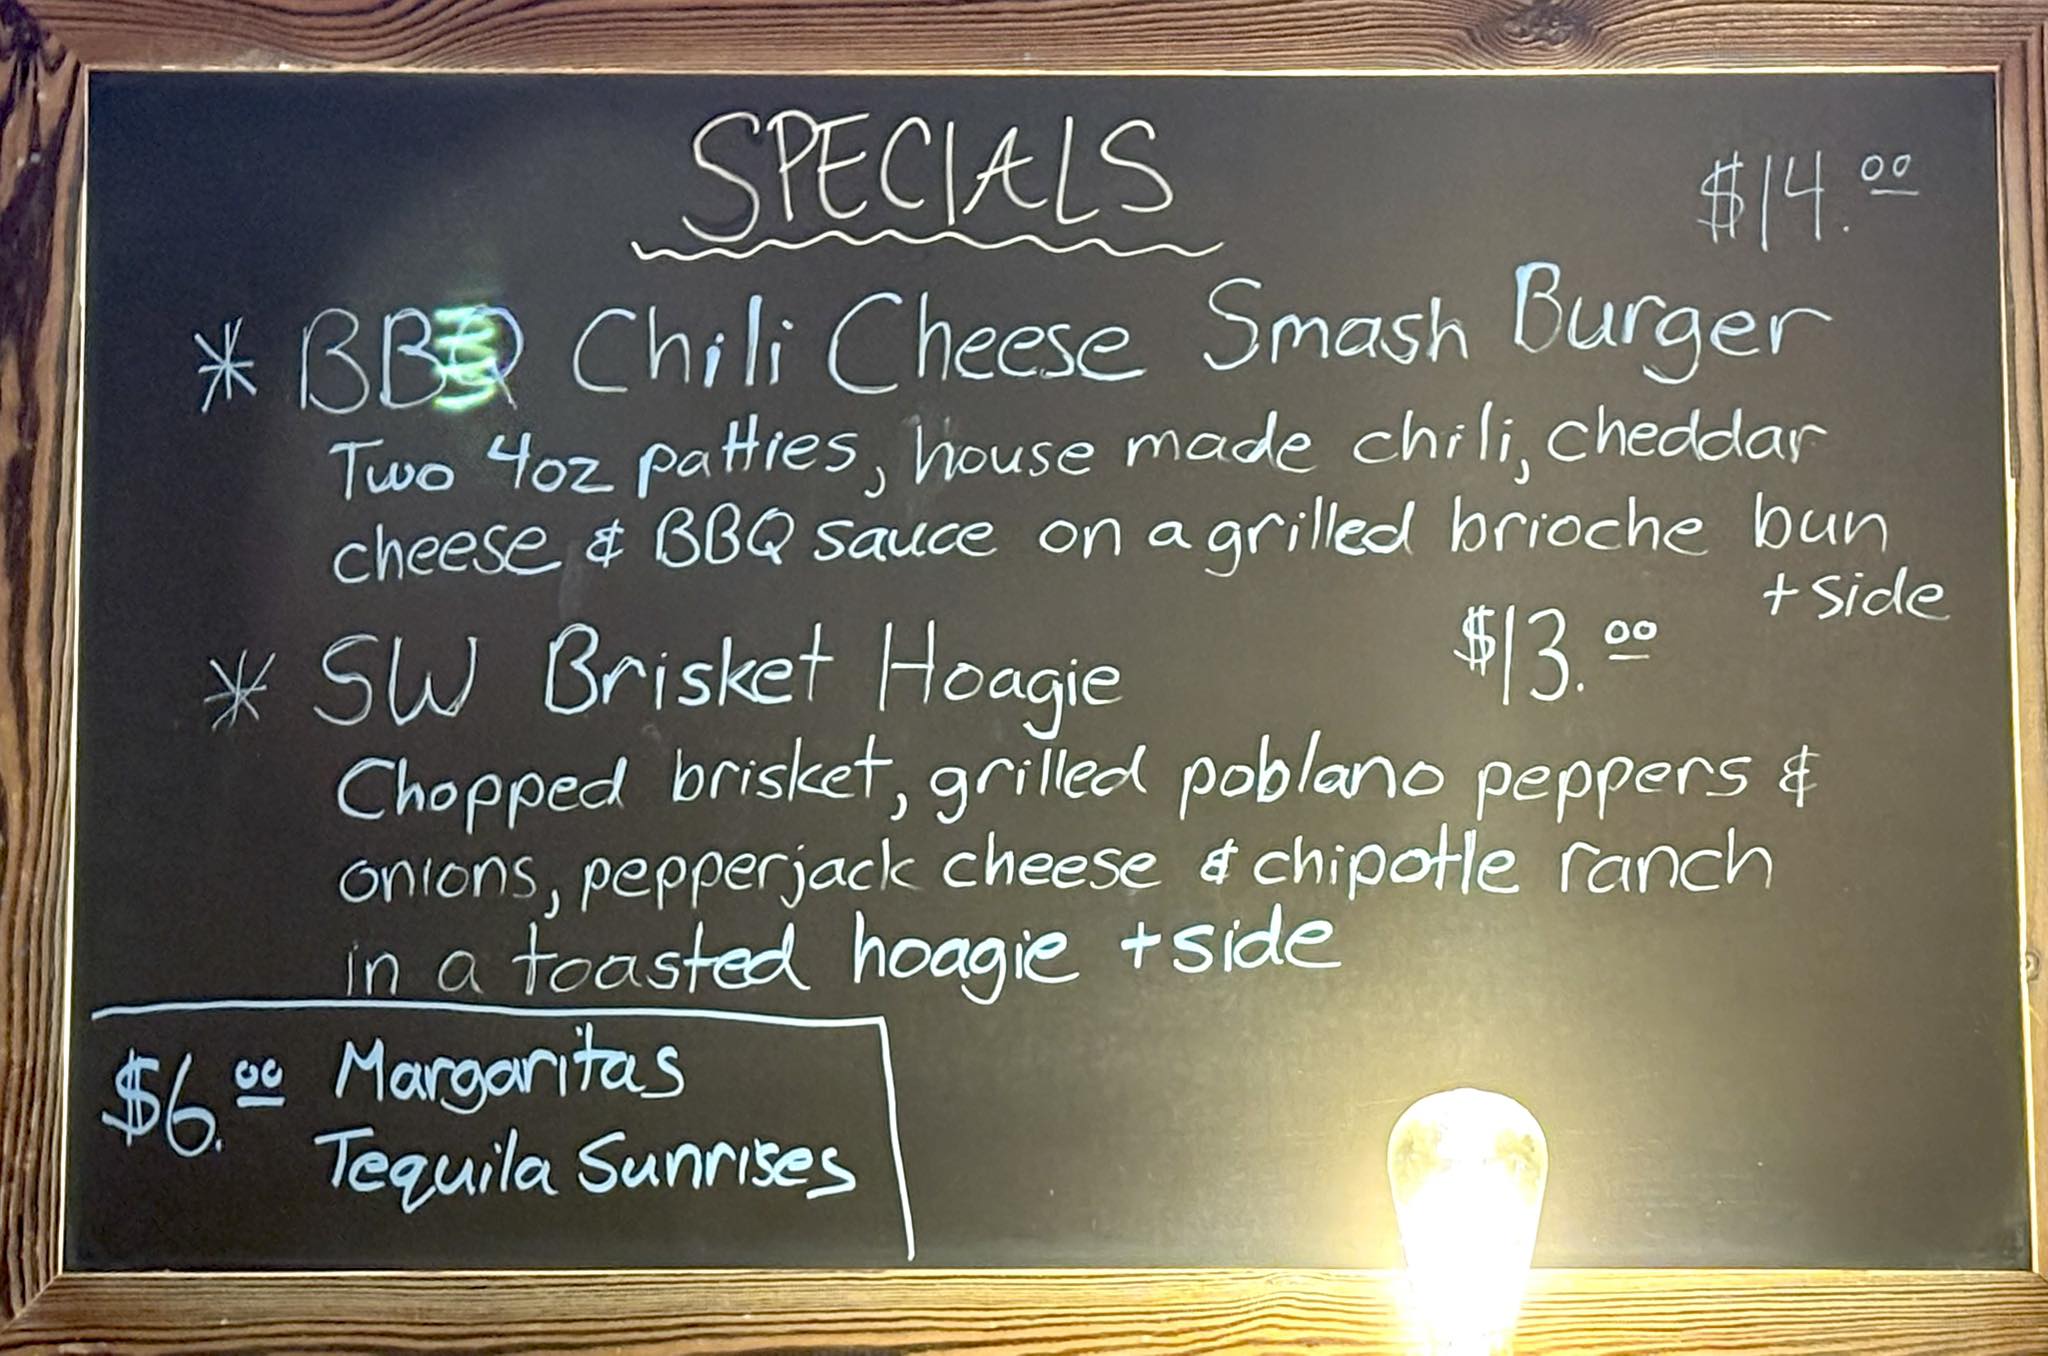 SPECIALS
$14.00
* BBQ Chili Cheese Smash Burger
Two 4oz patties, house made chili, cheddar
cheese & BBQ sauce on a grilled brioche bun
+ side
* SW Brisket Hoagie $13.00
Chopped brisket, grilled poblano peppers &
onions, pepperjack cheese & chipotle ranch
in a toasted hoagie + side
$6.00 Margaritas
Tequila Sunrises